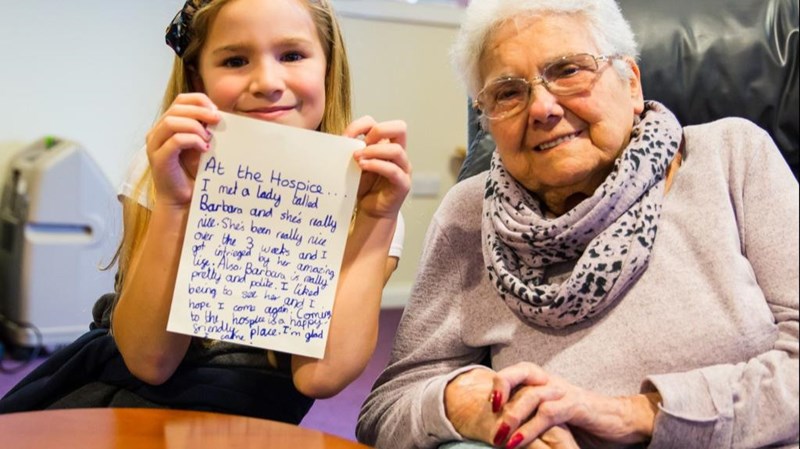 At the Hospice...
I met a lady called
Barbara and she's really
nice. She's been really nice
over the 3 weeks and I
got intrieged by her amazing
life. Also Barbara is really
pretty and polite. I liked
being to see her and I
hope I come again. Coming
to the hospice is a happy,
friendly place. I'm glad
I came!